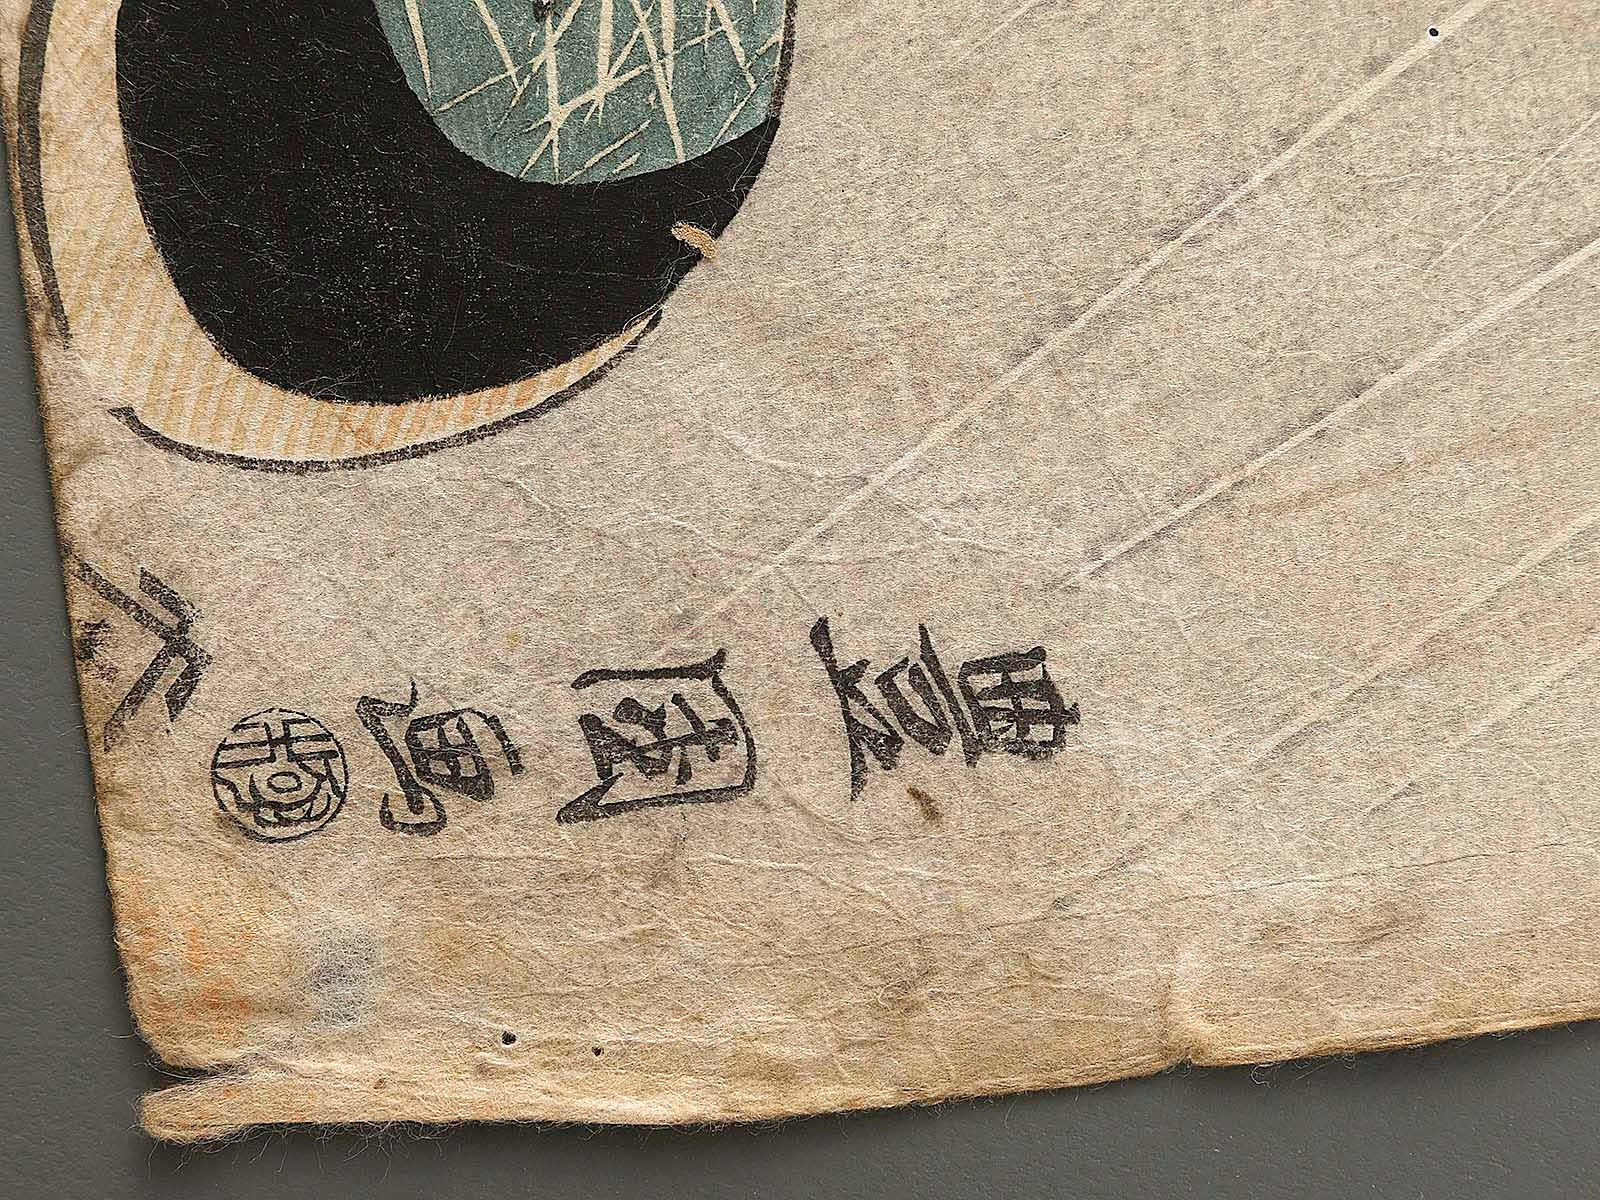 豊國画